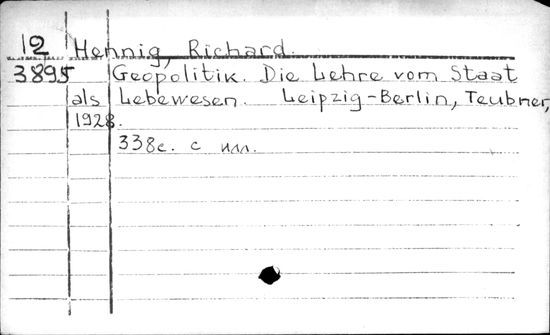 12 Hennig, Richard.
3895 Geopolitik. Die Lehre vom Staat
als Lebewesen. Leipzig-Berlin, Teubner,
1928.
338с. с илл.